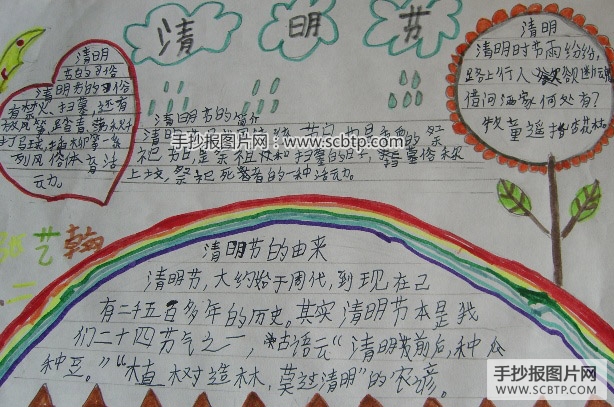 手抄报图片网
www.scbtp.com
清
明
节
清明
节的习俗
清明节的习俗
有禁火、扫墓,还有
放风筝,踏青,荡秋千
打马球,插柳等一系
列风俗体育活
动。
清明节的简介
祀节日,是祭祖
和扫墓的日子,
上坟,祭祀死者的一种活动。
手抄报图片网:
www.scbtp.com
清明
清明时节雨纷纷,
路上行人欲断魂
借问酒家何处有?
牧童遥指杏花村
艺翰
二
清明节的由来
清明节,大约始于周代,到现在已
有二千五百多年的历史。其实清明节本是我
们二十四节气之一,古语云“清明前后,种瓜
种豆。”“植树造林,莫过清明”的农谚。
手抄报图片网
WWW.SCBTP.COM